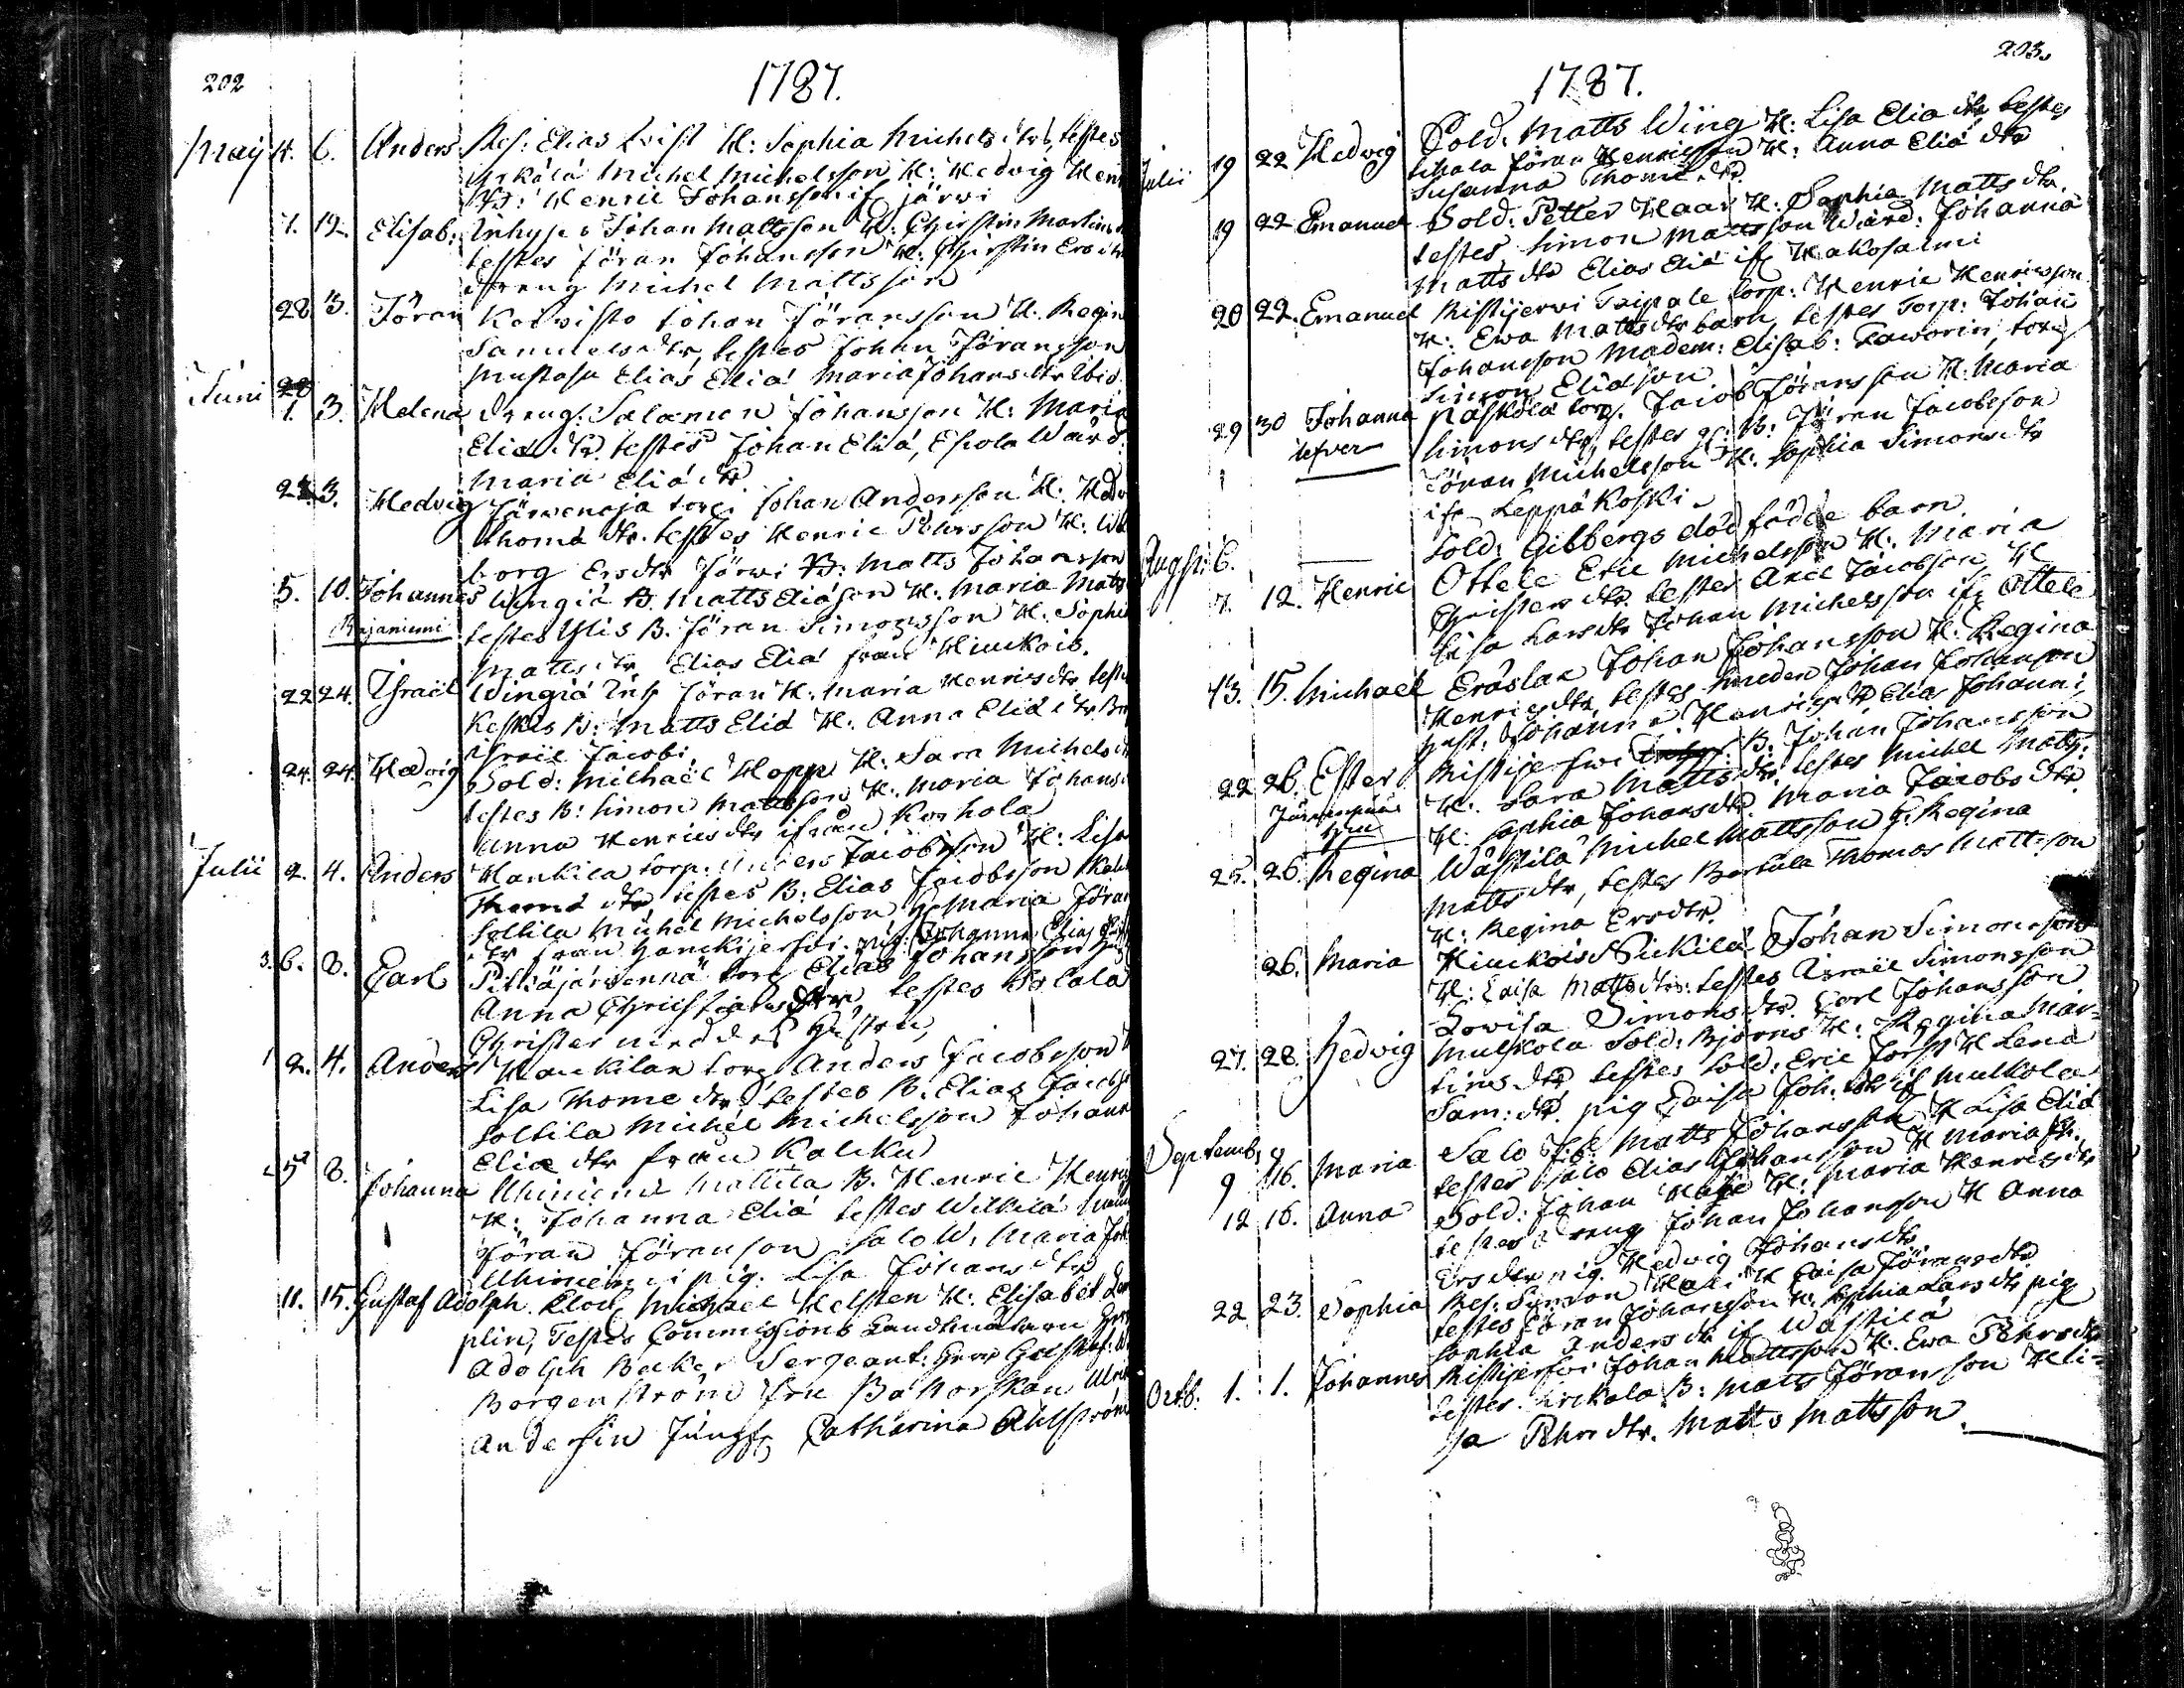 202
1787.
Maij 4. 6. Anders Res: Elias Qvist H: Sophia Michels dtr, testes
Michel Michelsson H: Hedvig Hen
B: Henric Johansson if järvi
7. 12. Elisab: Inhys: Johan Mattsson H: Christin Martins
testes Jöran Johansson H: Christin Ers dtr
dreng Michel Mattsson
28 3. Jöran Koivisto Johan Jöransson H. Regin
Samuels dtr, testes Johan Jöransson
Mustasu Elias Eliä Maria Johans dtr ibid.
Juni 1. 3. Helena dreng: Salomon Johansson H: Maria
Eliä dtr testes Johan Eliä, Eskola Wärd.
Maria Eliä dtr
3. Hedvig Järvenoja torp: Johan Andersson H: Hedv
Thomä dtr. testes Henric Pehrsson H: Wal
borg Ersdtr Järvi B: Matts Johansson
5. 10. Johannes Wingiä B. Matts Eliäson H: Maria Matts
Rajaniemi testes Ylis B. Jöran Simonsson H: Sophia
Matts dtr Elias Eliä från Hiuckois.
22 24. Israël Wingiä Inh Jöran H: Maria Henrics dtr test
Keskis B: Matts Eliä H: Anna Eliä dtr
Israël Jacobi.
24. 24. Hedvig Sold: Michaël Hopp H: Sara Michels d
testes B: Simon Mattsson H: Maria Johans
Anna Henrics dtr ifrån Korhola
Julii 2. 4. Anders Hankila torp: Anders Jacobsson H: Lisa
Thomä dtr testes B: Elias Jacobsson
Soltila Michel Michelsson H: Maria Jöran
dtr från Hanckijerfvi. pig: Johanna Elias
3. 6. 8. Carl Pitkäjärvennä torp Elias Johansson H
Anna Christians dtr, testes
Christer med des Hustru,
2. 4. Anders Hankilan torp Anders Jacobsson H
Lisa Thome dtr testes B: Elias Jacobs
Soltila Michel Michelsson Johann
Eliæ dtr från Kalcku
5 8. Johanna Uhiniemi Mattila B. Henric Henrics
H: Johanna Eliä testes Wilkilä
Jöran Jöranson Salo W. Maria Joh
Uhiniemi pig. Lisa Johans dtr
11. 15. Gustaf Adolph. Klock Michael Helsten H: Elisabet
plin, Testes Commissions Landtmätaren Herr
Adolph Becker Sergeant: Herr Gustaf: W
Borgenström fru Bahorskan Ulric
Andersin Jungf Catharina Ahlström
203.
1787.
Julii 19 22 Hedvig Sold: Matts Wing H: Lisa Eliä dtr testes
Jöran Henricsson H: Anna Eliä dtr
Susanna Thomæ dtr.
19 22 Emanuel Sold: Petter Haar H: Sophia Matts dtr.
testes Simon Mattsson Wärd: Johanna
Matts dtr Elias Eliä if Hakosalmi
20 22. Emanuel Ristijervi Taipale torp: Henric Henricsson
H: Ewa Matts dtr barn, testes Torp: Johan
Johansson Madem: Elisab: Faworin, torp
Simon Eliäson
29 30 Johanna Päskölä torp. Jacob Jöransson H: Maria
lefver Simons dtr, testes B: Jöran Jacobsson
Jöran Michelsson H: Sophia Simons dtr
if Leppäkoski.
Augsti 6. Sold: Gibbergs dödfödde barn.
7. 12. Henric Ottele Eric Michelsson H: Maria
Christers dtr. testes Axel Jacobson H
Lisa Lars dtr Johan Michelsson if Ottele
13. 15. Michaël Eräslax Johan Johansson H: Regina
Henrics dtr, testes Smeden Johan Johansson
Hust: Johanna Henrics dtr Elias Johanni,
22 26. Ester Ristijerfwi B: Johan Johansson
H: Sara Matts dtr testes Michel Matts:
H: Sophia Johans dtr. Maria Jacobs dtr
25. 26. Regina Wästilä Michel Mattsson H: Regina
Matts dtr, testes Bertula Thomas Mattsson
H: Regina Ersdtr.
26. Maria Hiuckois Nickilä Johan Simonsson
H: Caisa Matts dtr: testes Israël Simonsson
Lovisa Simons dtr. Carl Johansson
27. 28. Hedvig Mulkola Sold: Björns H: Regina Mar-
tins dtr testes Sold: Eric Forss H Lena
Sam: dtr. pig Caisa Joh. dtr if Mulkola
Septemb, 9 16. Maria Salo Matts Johansson H Lisa Eliä
testes Salo Elias Johansson H Maria
12 16. Anna Sold: Johan H: Maria Henrics dtr
testes Dreng Johan Johansson H Anna
Ersdtr pig. Hedvig Johans dtr.
22 23. Sophia Res: Simon H Caisa Jörans dtr
testes Jöran Johansson H: Sophia Lars dtr pig
Sophia Anders dtr if Wästilä
Octb. 1. 1. Johannes Ristijerfvi Johan Mattsson H: Ewa Pehrs dtr
testes. B: Matts Jöranson H Li-
sa Pehrs dtr. Matts Mattsson.